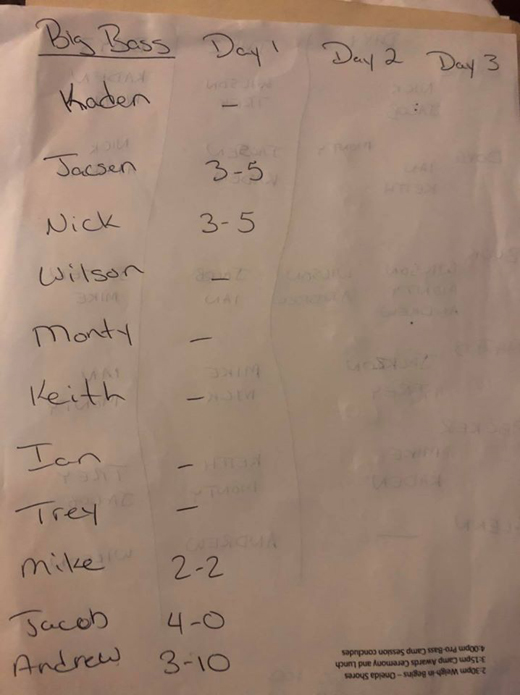 Big Bass Day 1 Day 2 Day 3
Kaden –
Jacsen 3-5
Nick 3-5
Wilson –
Monty –
Keith –
Ian –
Trey –
Mike 2-2
Jacob 4-0
Andrew 3-10
2:30pm Weigh-in Begins – Oneida Shores
3:15pm Camp Awards Ceremony and Lunch
4:00pm Pro-Bass Camp Session concludes